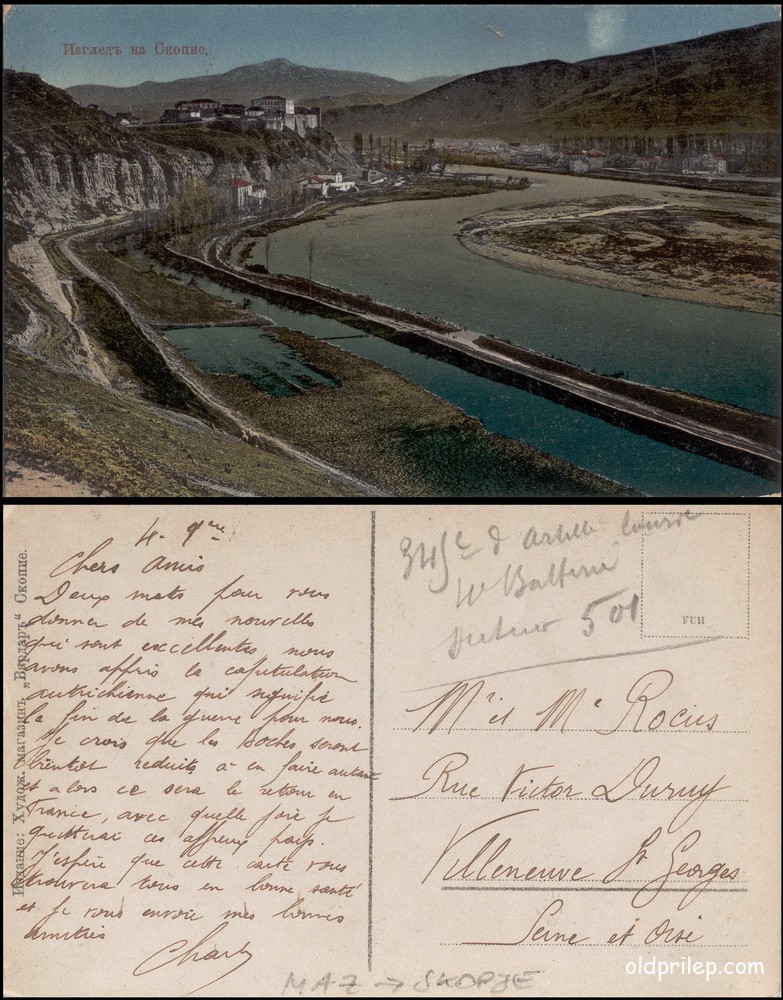 Изгледъ на Скопие.
4 - 9bre
Chers Amis
Deux mots pour vous
donner de mes nouvelles
qui sont excellentes nous
avons appris la capitulation
autrichienne qui signifie
la fin de la guerre pour nous.
Je crois que les Boches seront
bientôt reduits à en faire autant
et alors ce sera le retour en
France, avec quelle joie je
quitterai ces affreux pays.
J'espère que cette carte vous
trouvera tous en bonne santé
et je vous envoie mes bonnes
amitiés
Charly
Издание: Худож. магазинъ „Вардаръ“ Скопие.
345e d'Artill lourde
10 Batterie
secteur 501
FUH
Mr et Me Rocius
Rue Victor Duruy
Villeneuve St Georges
Seine et Oise
MAZ → SKOPJE
oldprilep.com